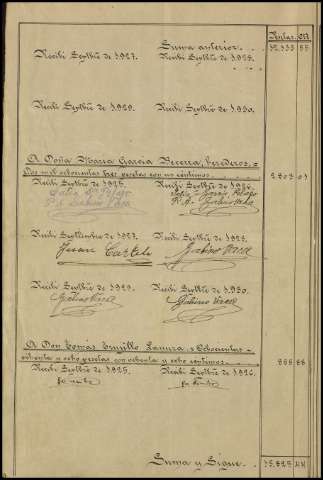 Pesetas. Cts.
Suma anterior. . . . 12.133 55
Recibí Sepbre de 1.927. Recibí Sepbre de 1.928.
Recibí Sepbre de 1.929. Recibí Sepbre de 1.930.
A Doña María García Becerra, herederos,=
Dos mil ochocientas tres pesetas con un céntimo. . . . 2.803 01
Recibí Sepbre de 1.925. Recibí Sepbre de 1.926.
Recibí Septiembre de 1.927. Recibí Sepbre de 1.928.
Juan Gabino Vaca
Recibí Sepbre de 1.929. Recibí Sepbre de 1.930.
Gabino Vaca Gabino Vaca
A Don Tomás Trujillo Lamura = Ochocientas
ochenta y ocho pesetas con ochenta y ocho céntimos. 888 88
Recibí Sepbre de 1.925. Recibí Sepbre de 1.926.
Suma y Sigue. . . 15.825 44